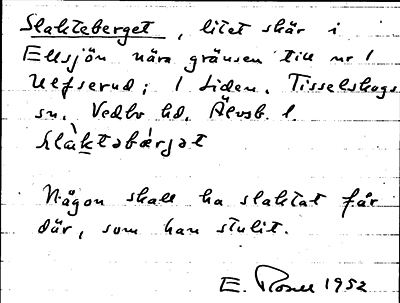 Slakteberget, litet skär i
Ellsjön nära gränsen till nr 1
Ulfserud i 1 Liden. Tisselskogs
sn. Vedbo hd. Älvsb. l.
slàktəbǽrjət
Någon skall ha slaktat får
där, som han stulit.
E. Rosell 1952